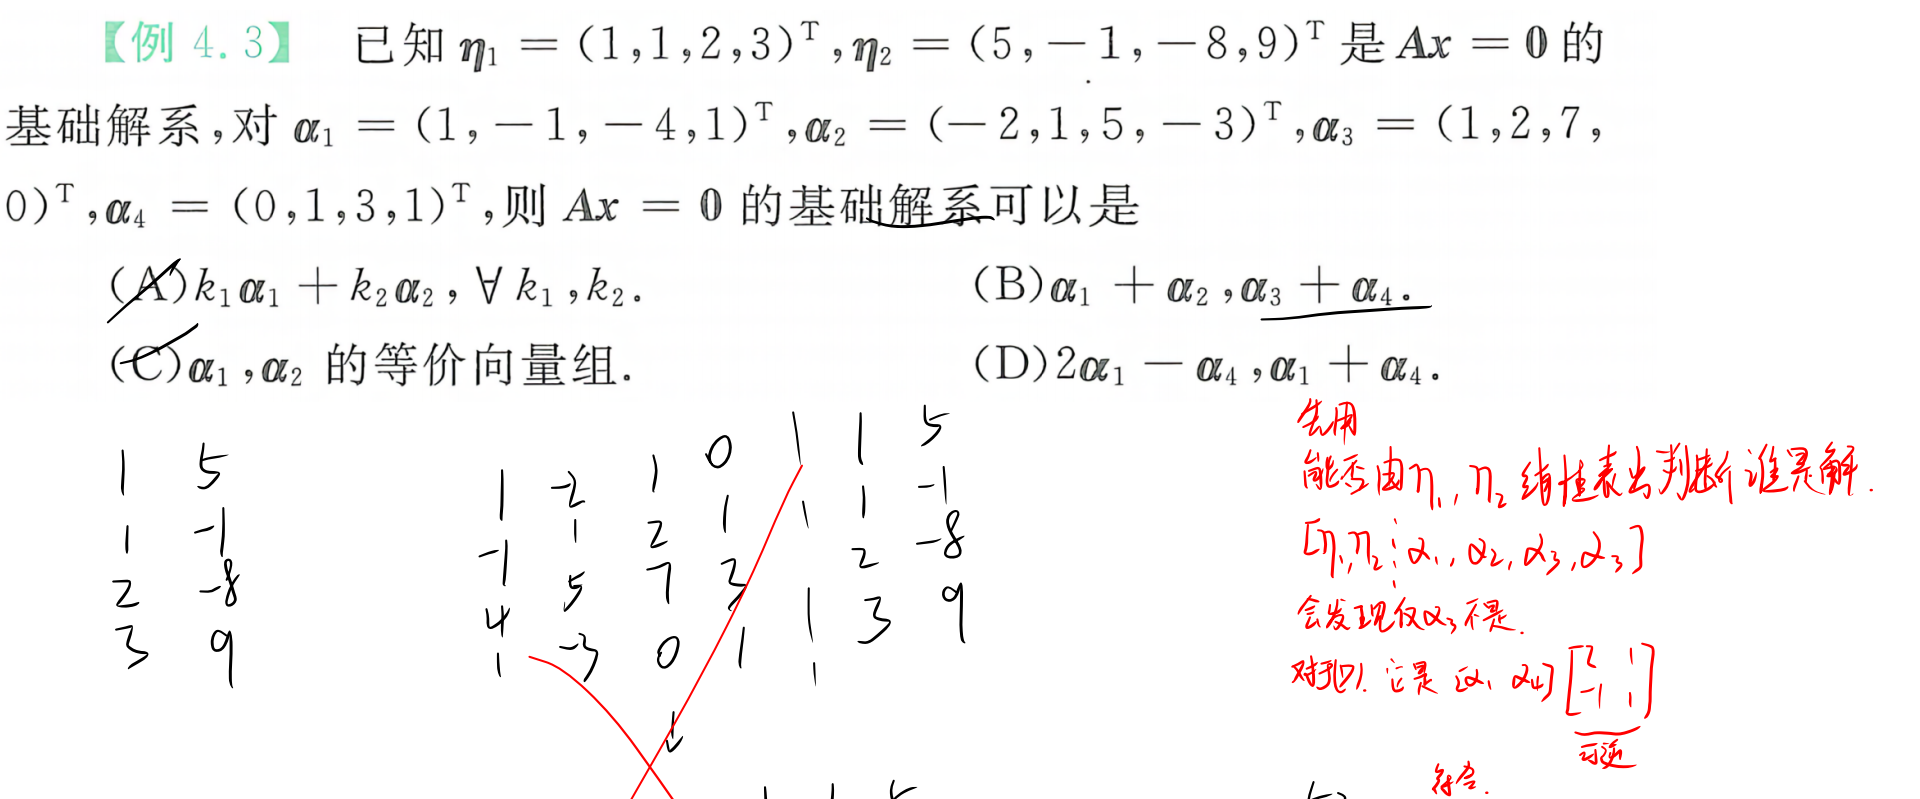 【例 4.3】 已知 η₁ = (1,1,2,3)ᵀ,η₂ = (5,−1,−8,9)ᵀ 是 Ax = 0 的
基础解系,对 α₁ = (1,−1,−4,1)ᵀ,α₂ = (−2,1,5,−3)ᵀ,α₃ = (1,2,7,
0)ᵀ,α₄ = (0,1,3,1)ᵀ,则 Ax = 0 的基础解系可以是
(A)k₁α₁ + k₂α₂,∀ k₁,k₂.
(B)α₁ + α₂,α₃ + α₄.
(C)α₁,α₂ 的等价向量组.
(D)2α₁ − α₄,α₁ + α₄.
1 5
1 -1
2 -8
3 9
1 -2 1 0 | 1 5
-1 1 2 1 | 1 -1
4 5 7 3 | 2 -8
1 -3 0 1 | 3 9
↓
先用
能否由η₁,η₂ 线性表出判断谁是解.
[η₁,η₂⋮α₁,α₂,α₃,α₃]
会发现仅α₃不是.
对于(D). 它是 [α₁ α₄] [2 1
-1 1]
可逆
符合.
1 1 5